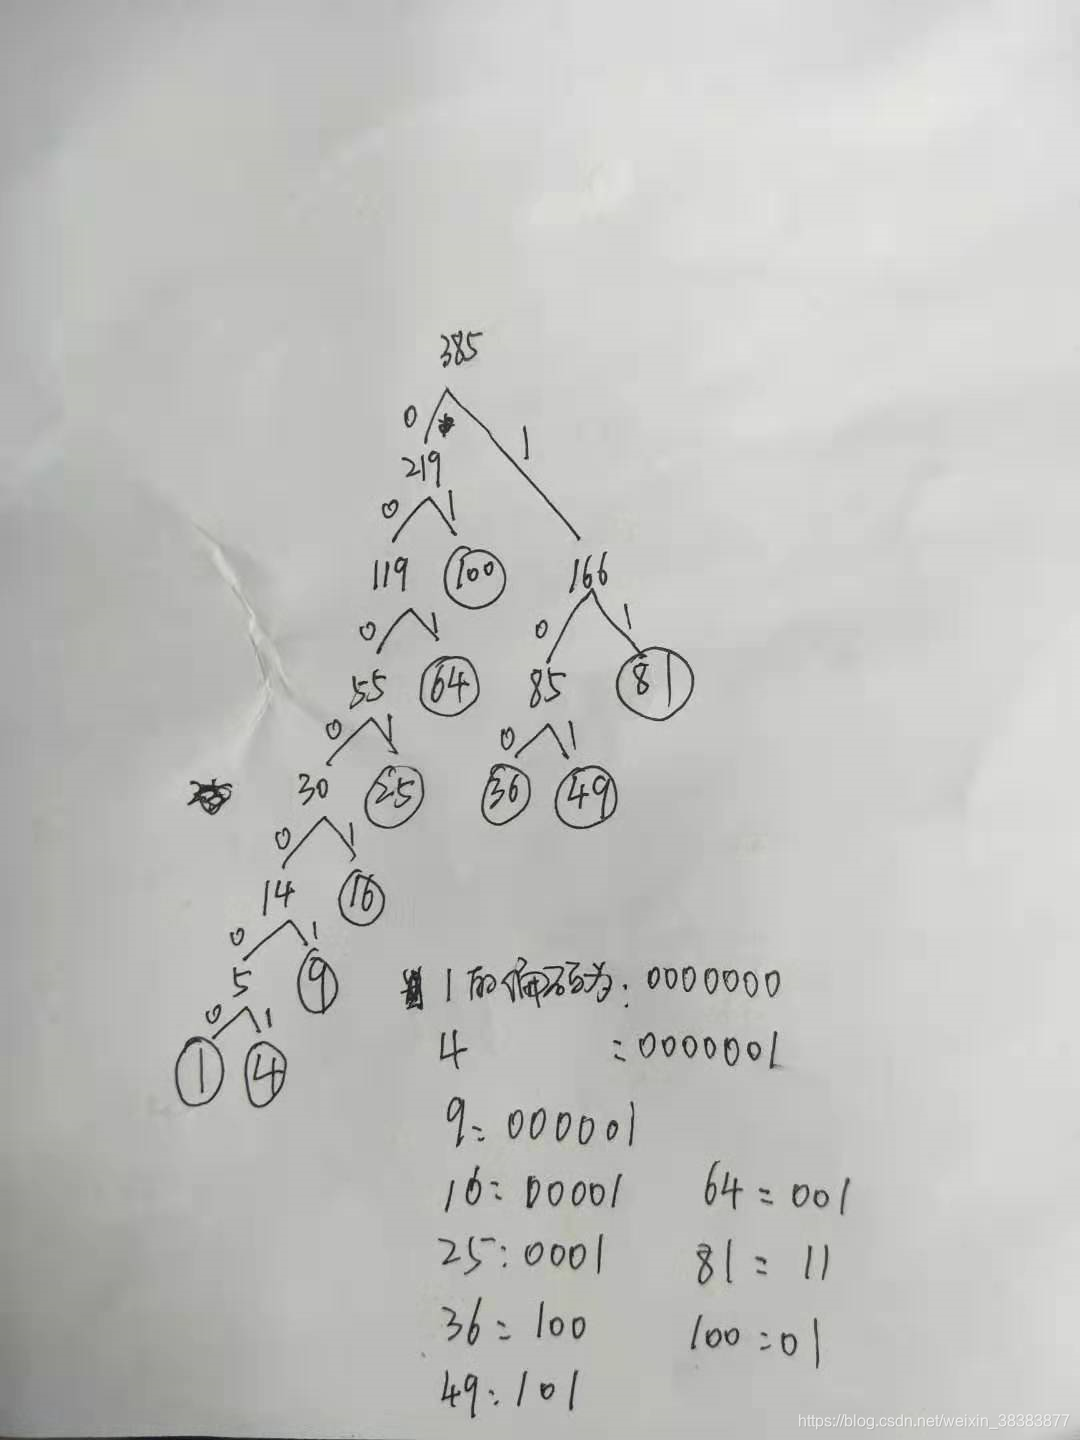 385
0 1
219
0 1
119 100 166
0 1 0 1
55 64 85 81
0 1 0 1
30 25 36 49
0 1
14 16
0 1
5 9
0 1
1 4
1的编码为: 0000000
4 =0000001
9= 000001
16= 00001 64=001
25:0001 81= 11
36= 100 100=01
49:101
https://blog.csdn.net/weixin_38383877